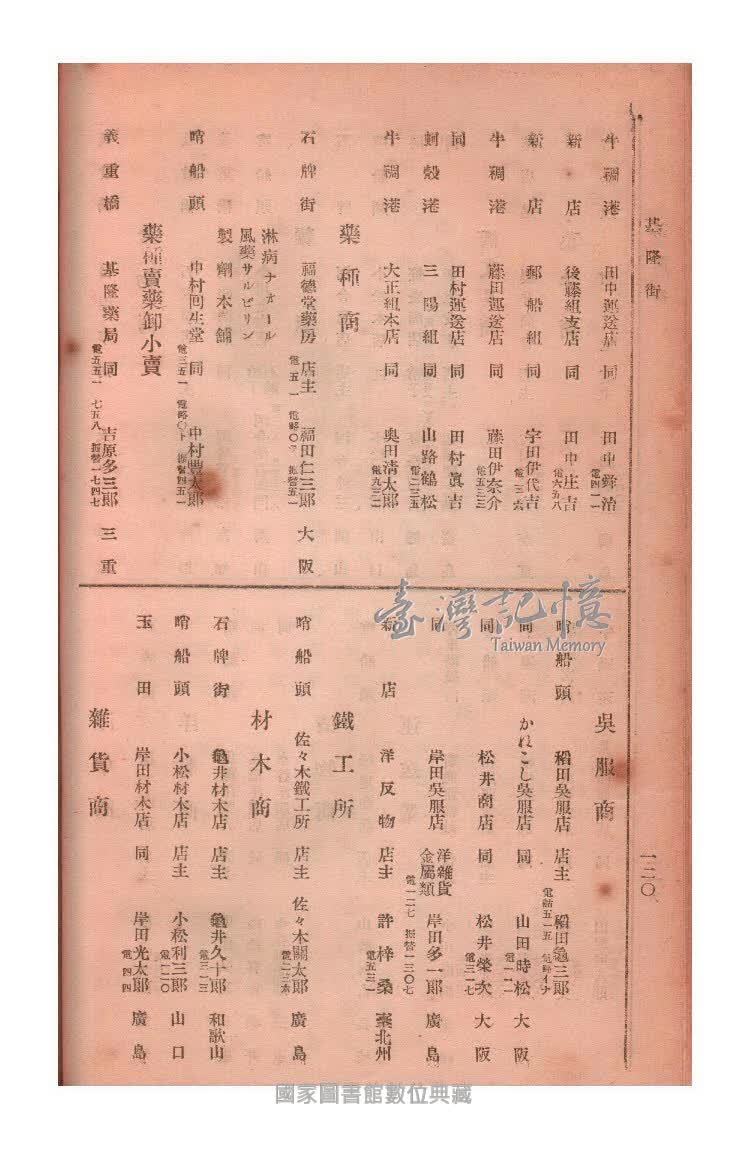 基隆街
一二〇
牛稠港 田中運送店 同 田中舜治 電四一一
新店 後藤組支店 同 田中庄吉 電六五八
新店 郵船組 同 宇田伊代吉 電一三六
牛稠港 藤田運送店 同 藤田伊奈介 電五三三
同 田村運送店 同 田村眞吉
蚵殼港 三陽組 同 山路鶴松 電二三五
牛稠港 大正組本店 同 奥田清太郎 電九三二
藥種商
石牌街 福德堂藥房 店主 福田仁三郎 大阪
電五一 電略〇フ 振替五一
淋病ナオール
風藥サルピリン
製劑本舗
哨船頭 中村囘生堂 同 中村豐太郎
電三五一 電略〇ト 振替四五一
藥種賣藥卸小賣
義重橋 基隆藥局 同 吉原多三郎 三重
電五五一 七五八 振替一七四七
吳服商
哨船頭 稻田吳服店 店主 稻田龜三郎
電話五一五 電略イナ
同 かねこし吳服店 同 山田時松 大阪
電一一一
同 松井商店 同 松井榮次 大阪
電三一七
同 岸田吳服店 洋雜貨 金屬類 岸田多一郎 廣島
電一二七 振替一三〇七
新店 洋反物 店主 許梓桑 臺北州
電五三一
鐵工所
哨船頭 佐々木鐵工所 店主 佐々木關太郎 廣島
電二三六
材木商
石牌街 龜井材木店 店主 龜井久十郎 和歌山
電三一三
哨船頭 小松材木店 店主 小松利三郎 山口
電一二〇
玉田 岸田材木店 同 岸田光太郎 廣島
電一四四
雜貨商
臺灣記憶
Taiwan Memory
國家圖書館數位典藏